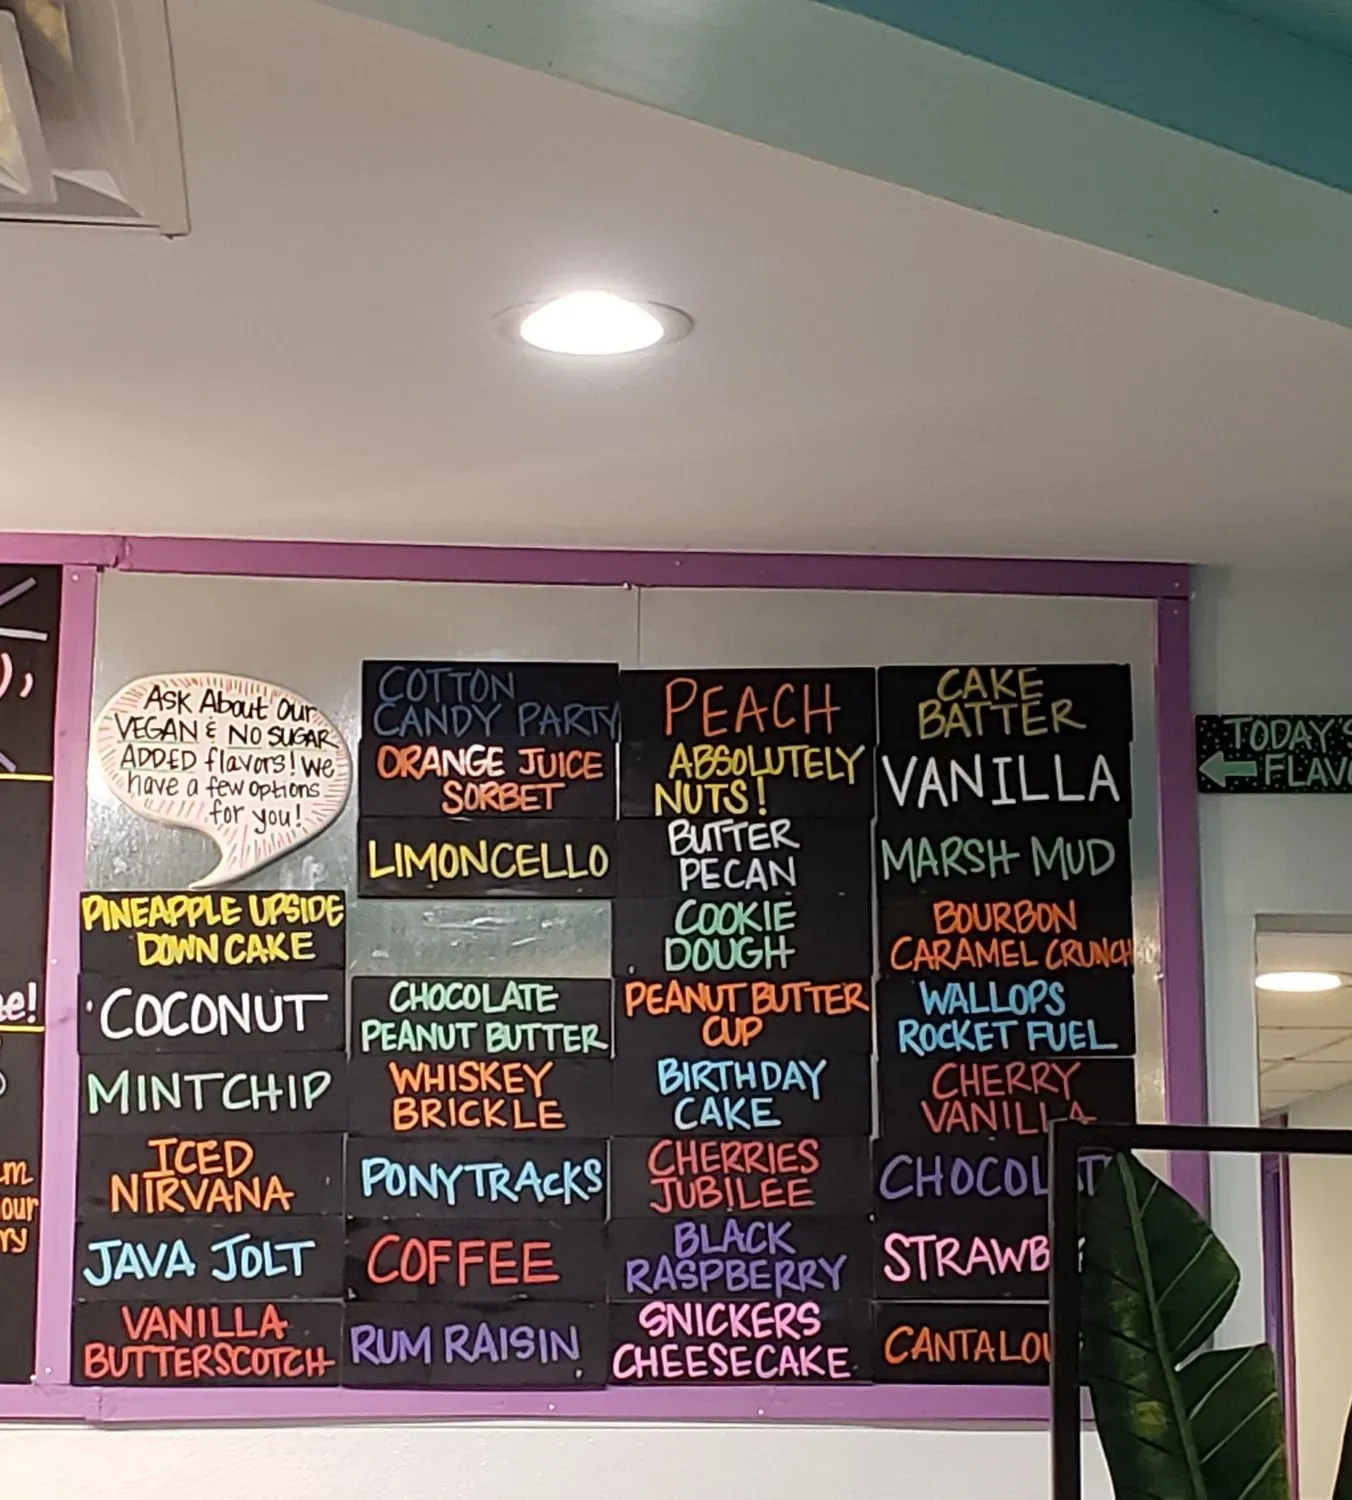 Ask About Our
VEGAN & NO SUGAR
ADDED flavors! We
have a few options
for you!
PINEAPPLE UPSIDE
DOWN CAKE
COCONUT
MINT CHIP
ICED
NIRVANA
JAVA JOLT
VANILLA
BUTTERSCOTCH
COTTON
CANDY PARTY
ORANGE JUICE
SORBET
LIMONCELLO
CHOCOLATE
PEANUT BUTTER
WHISKEY
BRICKLE
PONY TRACKS
COFFEE
RUM RAISIN
PEACH
ABSOLUTELY
NUTS!
BUTTER
PECAN
COOKIE
DOUGH
PEANUT BUTTER
CUP
BIRTHDAY
CAKE
CHERRIES
JUBILEE
BLACK
RASPBERRY
SNICKERS
CHEESECAKE
CAKE
BATTER
VANILLA
MARSH MUD
BOURBON
CARAMEL CRUNCH
WALLOPS
ROCKET FUEL
CHERRY
VANILLA
CHOCOLAT
STRAWB
CANTALOU
TODAY'S
FLAV